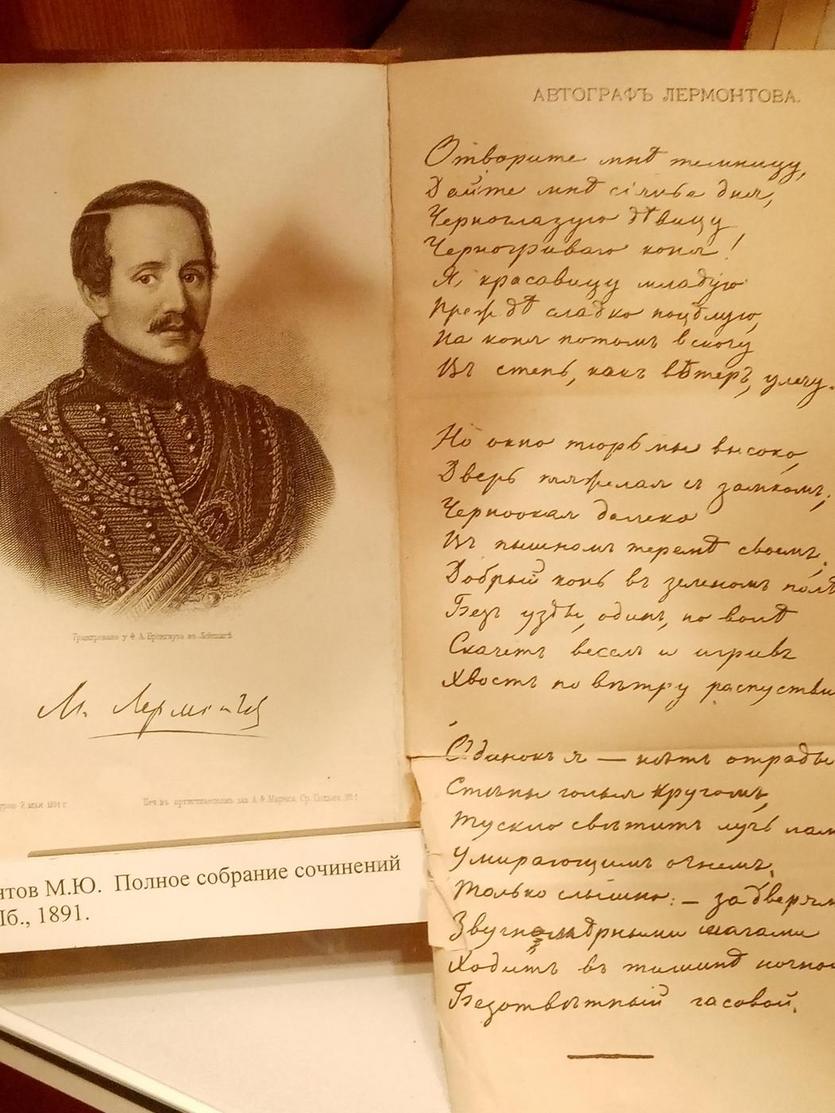 Гравировано у Ф. А. Брокгауза въ Лейпцигѣ
М. Лермонтов
2 мая 1891 г.
Печ. въ артистическомъ зав. А. Ф. Маркса, Ср. Подъяч. №1
нтов М.Ю. Полное собрание сочинений
Пб., 1891.
АВТОГРАФЪ ЛЕРМОНТОВА.
Отворите мнѣ темницу,
Дайте мнѣ сіянье дня,
Черноглазую дѣвицу
Черногриваго коня!
Я, красавицу младую
Прежде сладко поцѣлую,
На коня потомъ вскочу
Въ степь, какъ вѣтеръ, улечу.
Но окно тюрьмы высоко,
Дверь тяжелая съ замкомъ;
Черноокая далеко
Въ пышномъ теремѣ своемъ;
Добрый конь въ зеленомъ полѣ
Безъ узды, одинъ, по волѣ
Скачетъ веселъ и игривъ
Хвостъ по вѣтру распустив
Одинокъ я — нѣтъ отрады
Стѣны голыя кругомъ,
Тускло свѣтитъ лучь лам
Умирающимъ огнемъ,
Только слышно: — за дверям
Звучномѣрными шагами
Ходитъ въ тишинѣ ночно
Безотвѣтный часовой.